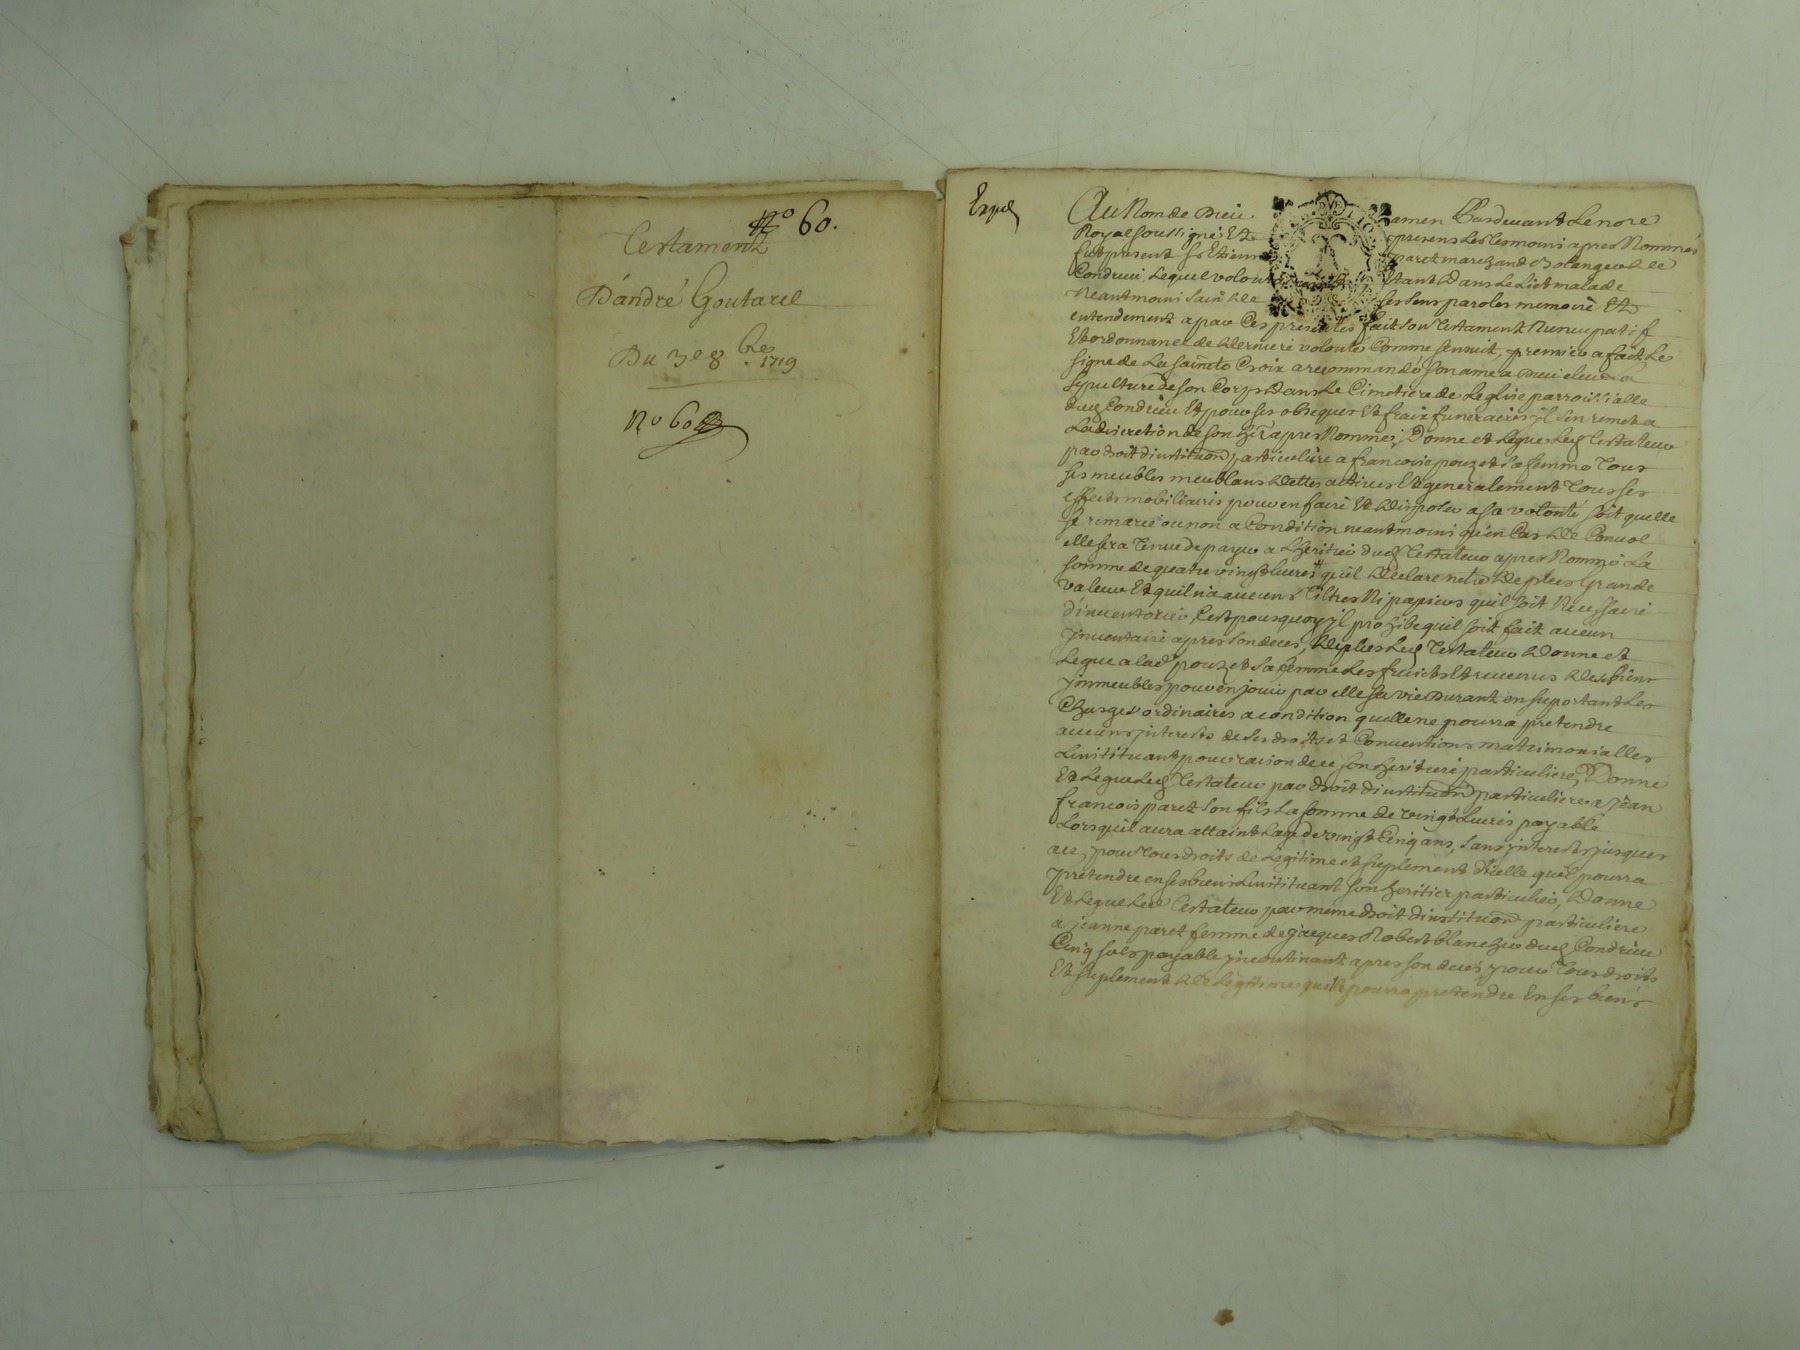 No 60.
Testament
D'andré Goutarel
Du 3e 8bre 1719
No 60
Expé
Au Nom de Dieu amen Pardevant Le nore
Royal soussigné Et presens Les tesmoins apres Nommés
fut present sr Etienne paret marchand Bolanger de
Condrieu, Lequel volont Etant Dans Le Lict malade
Neantmoins sain de ses sens paroles memoire Et
entendement a par Ces presentes fait son Testament Nuncupatif
Et ordonnance de derniere volonté Comme sensuit, premier a fait Le
signe de La saincte Croix a recommandé son ame a Dieu eleu La
sepulture de son Corps dans Le Cimetiere de Leglise parroissialle
dud Condrieu Et pour ses obseques Et fraix funeraires yl sen remet a
La discretion de son her apres Nommé, Donne et Legue Led Testateur
par droit d'instituon particuliere a francoise pouzet sa femme Tous
ses meubles meublans dettes actives Et generalement Tous ses
effects mobiliairs pour en faire Et disposer a sa volonté soit quelle
se remarie ou non a Condition neantmoins qu'en Cas de Convol
elle sera Tenue de payer a Lheritier dud Testateur apres Nommé La
somme de quatre vingt livres quil declare netre de plus Grande
valeur Et quil n'a aucuns Tiltres Ni papiers quil soit Necessaire
d'inventorier, Cest pourquoy yl prohibe quil soit fait aucun
ynventaire apres son deces, de plus Led Testateur Donne et
Legue a lad pouzet sa femme Les fruicts Et revenus de ses biens
ynmeubles pour en jouir par elle sa vie Durant en suportant Les
Charges ordinaires a condition quelle ne pourra pretendre
aucuns ynterests de ses droits et Conventions matrimonialles
Linstituant pour raison de ce son heritiere particuliere, Donne
Et Legue Led Testateur par droit d'instituon particuliere a jean
francois paret son fils La somme de vingt Livres payable
Lorsquil aura attaint Lage de vingt Cinq ans, sans ynterests jusques
a ce, pour Tous droits de Legitime et suplement d'icelle quil pourra
pretendre en ses biens Linstituant son heritier particulier, Donne
Et Legue Led Testateur par meme droit d'instituon particuliere
a jeanne paret femme de jacques Robert blancher dud Condrieu
Cinq sols payable yncontinant apres son deces pour Tous droits
Et suplement de Legitime quelle pourra pretendre En ses biens